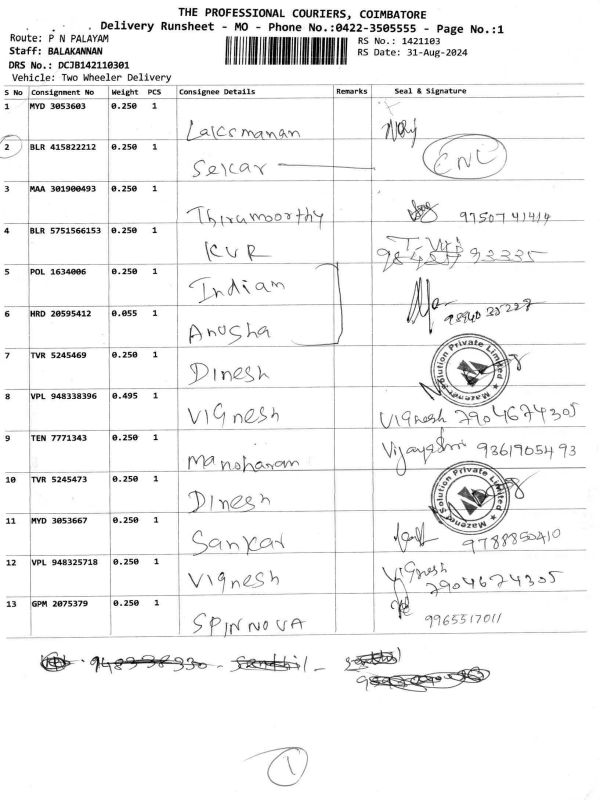 THE PROFESSIONAL COURIERS, COIMBATORE
Delivery Runsheet - MO - Phone No.:0422-3505555 - Page No.:1
Route: P N PALAYAM
RS No.: 1421103
Staff: BALAKANNAN
RS Date: 31-Aug-2024
DRS No.: DCJB142110301
Vehicle: Two Wheeler Delivery
S No Consignment No Weight PCS Consignee Details Remarks Seal & Signature
1 MYD 3053603 0.250 1
Laksmanan
2 BLR 415822212 0.250 1
Sekar CNL
3 MAA 301900493 0.250 1
Thiramoorthy 9750741414
4 BLR 5751566153 0.250 1
KVR
5 POL 1634006 0.250 1
Indian
6 HRD 20595412 0.055 1
Anusha
7 TVR 5245469 0.250 1
Dinesh Mazenet Solution Private Limited
8 VPL 948338396 0.495 1
Vignesh Vignesh 7904674305
9 TEN 7771343 0.250 1
Manoharam Vijayashri 9361905493
10 TVR 5245473 0.250 1
Dinesh Mazenet Solution Private Limited
11 MYD 3053667 0.250 1
Sankar 9788850410
12 VPL 948325718 0.250 1
Vignesh Vignesh 7904674305
13 GPM 2075379 0.250 1
SPINNOVA 9965517011
1